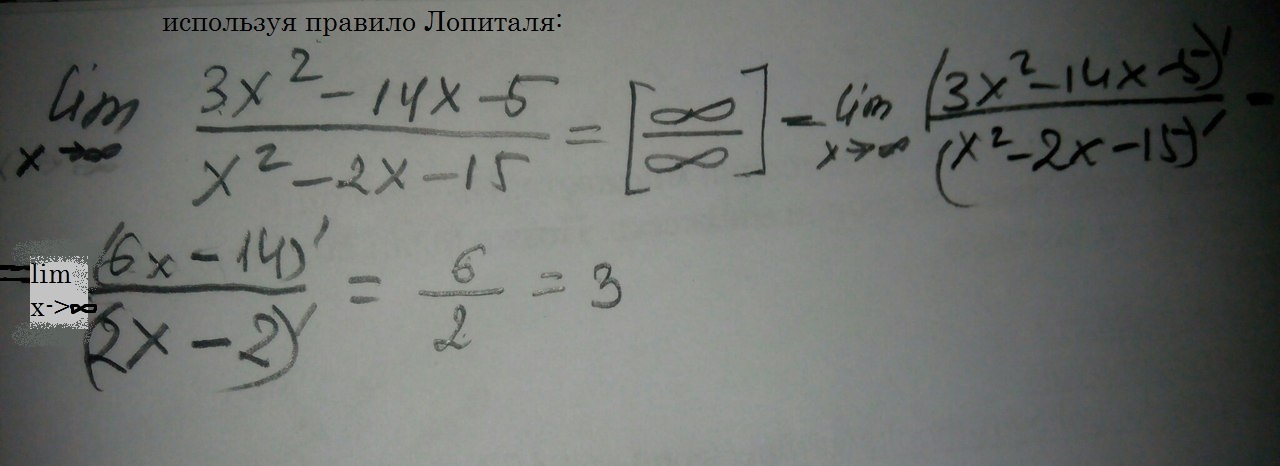 используя правило Лопиталя:
lim x→∞ (3x² - 14x - 5)/(x² - 2x - 15) = [∞/∞] = lim x→∞ (3x² - 14x - 5)'/(x² - 2x - 15)' =
= lim x->∞ (6x - 14)'/(2x - 2)' = 6/2 = 3